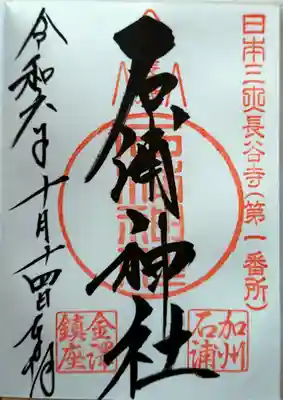 日本三所長谷寺(第一番所)
加州
石浦
石浦神社
金澤
鎮座
令和六年十月十四日